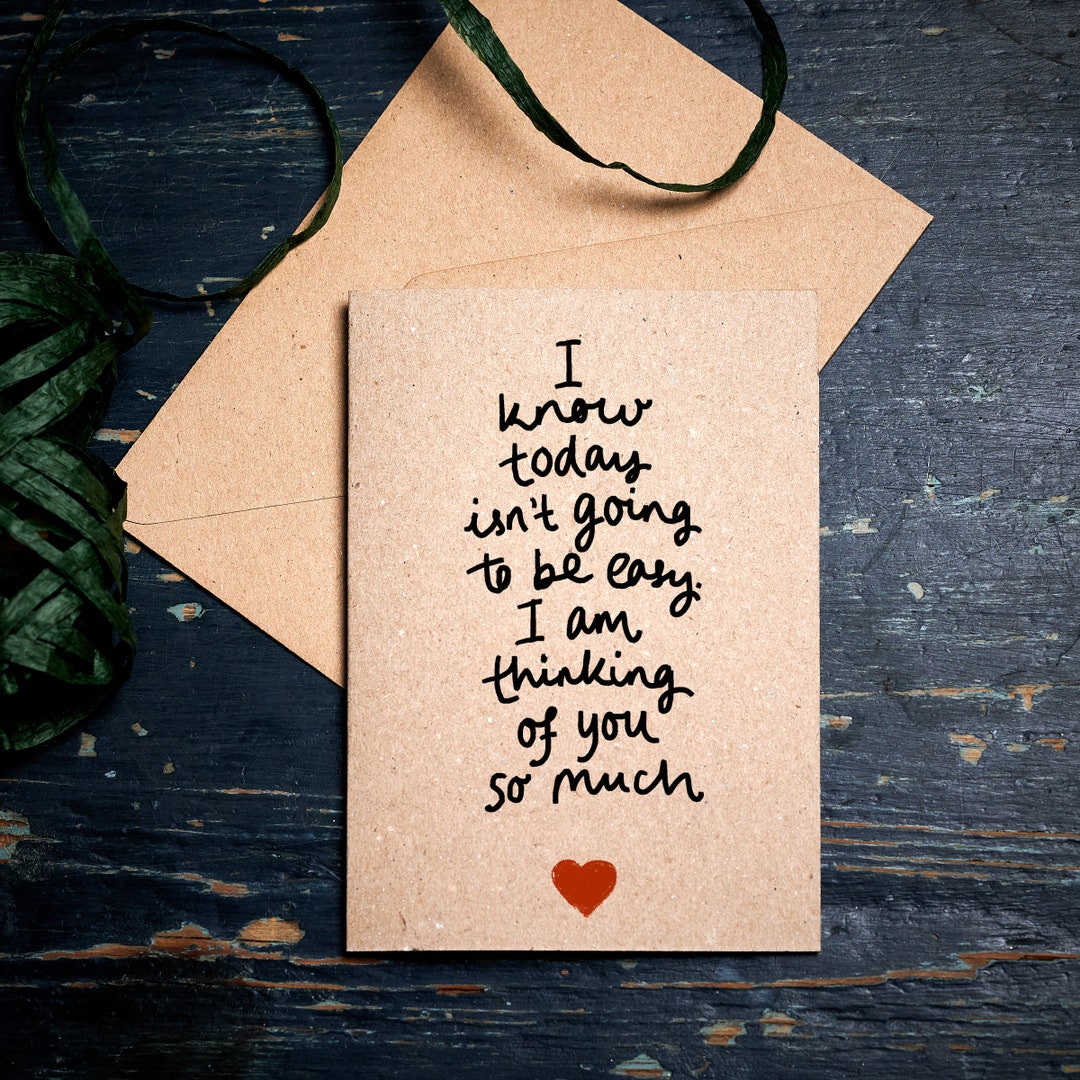 I
know
today
isn't going
to be easy.
I am
thinking
of you
so much